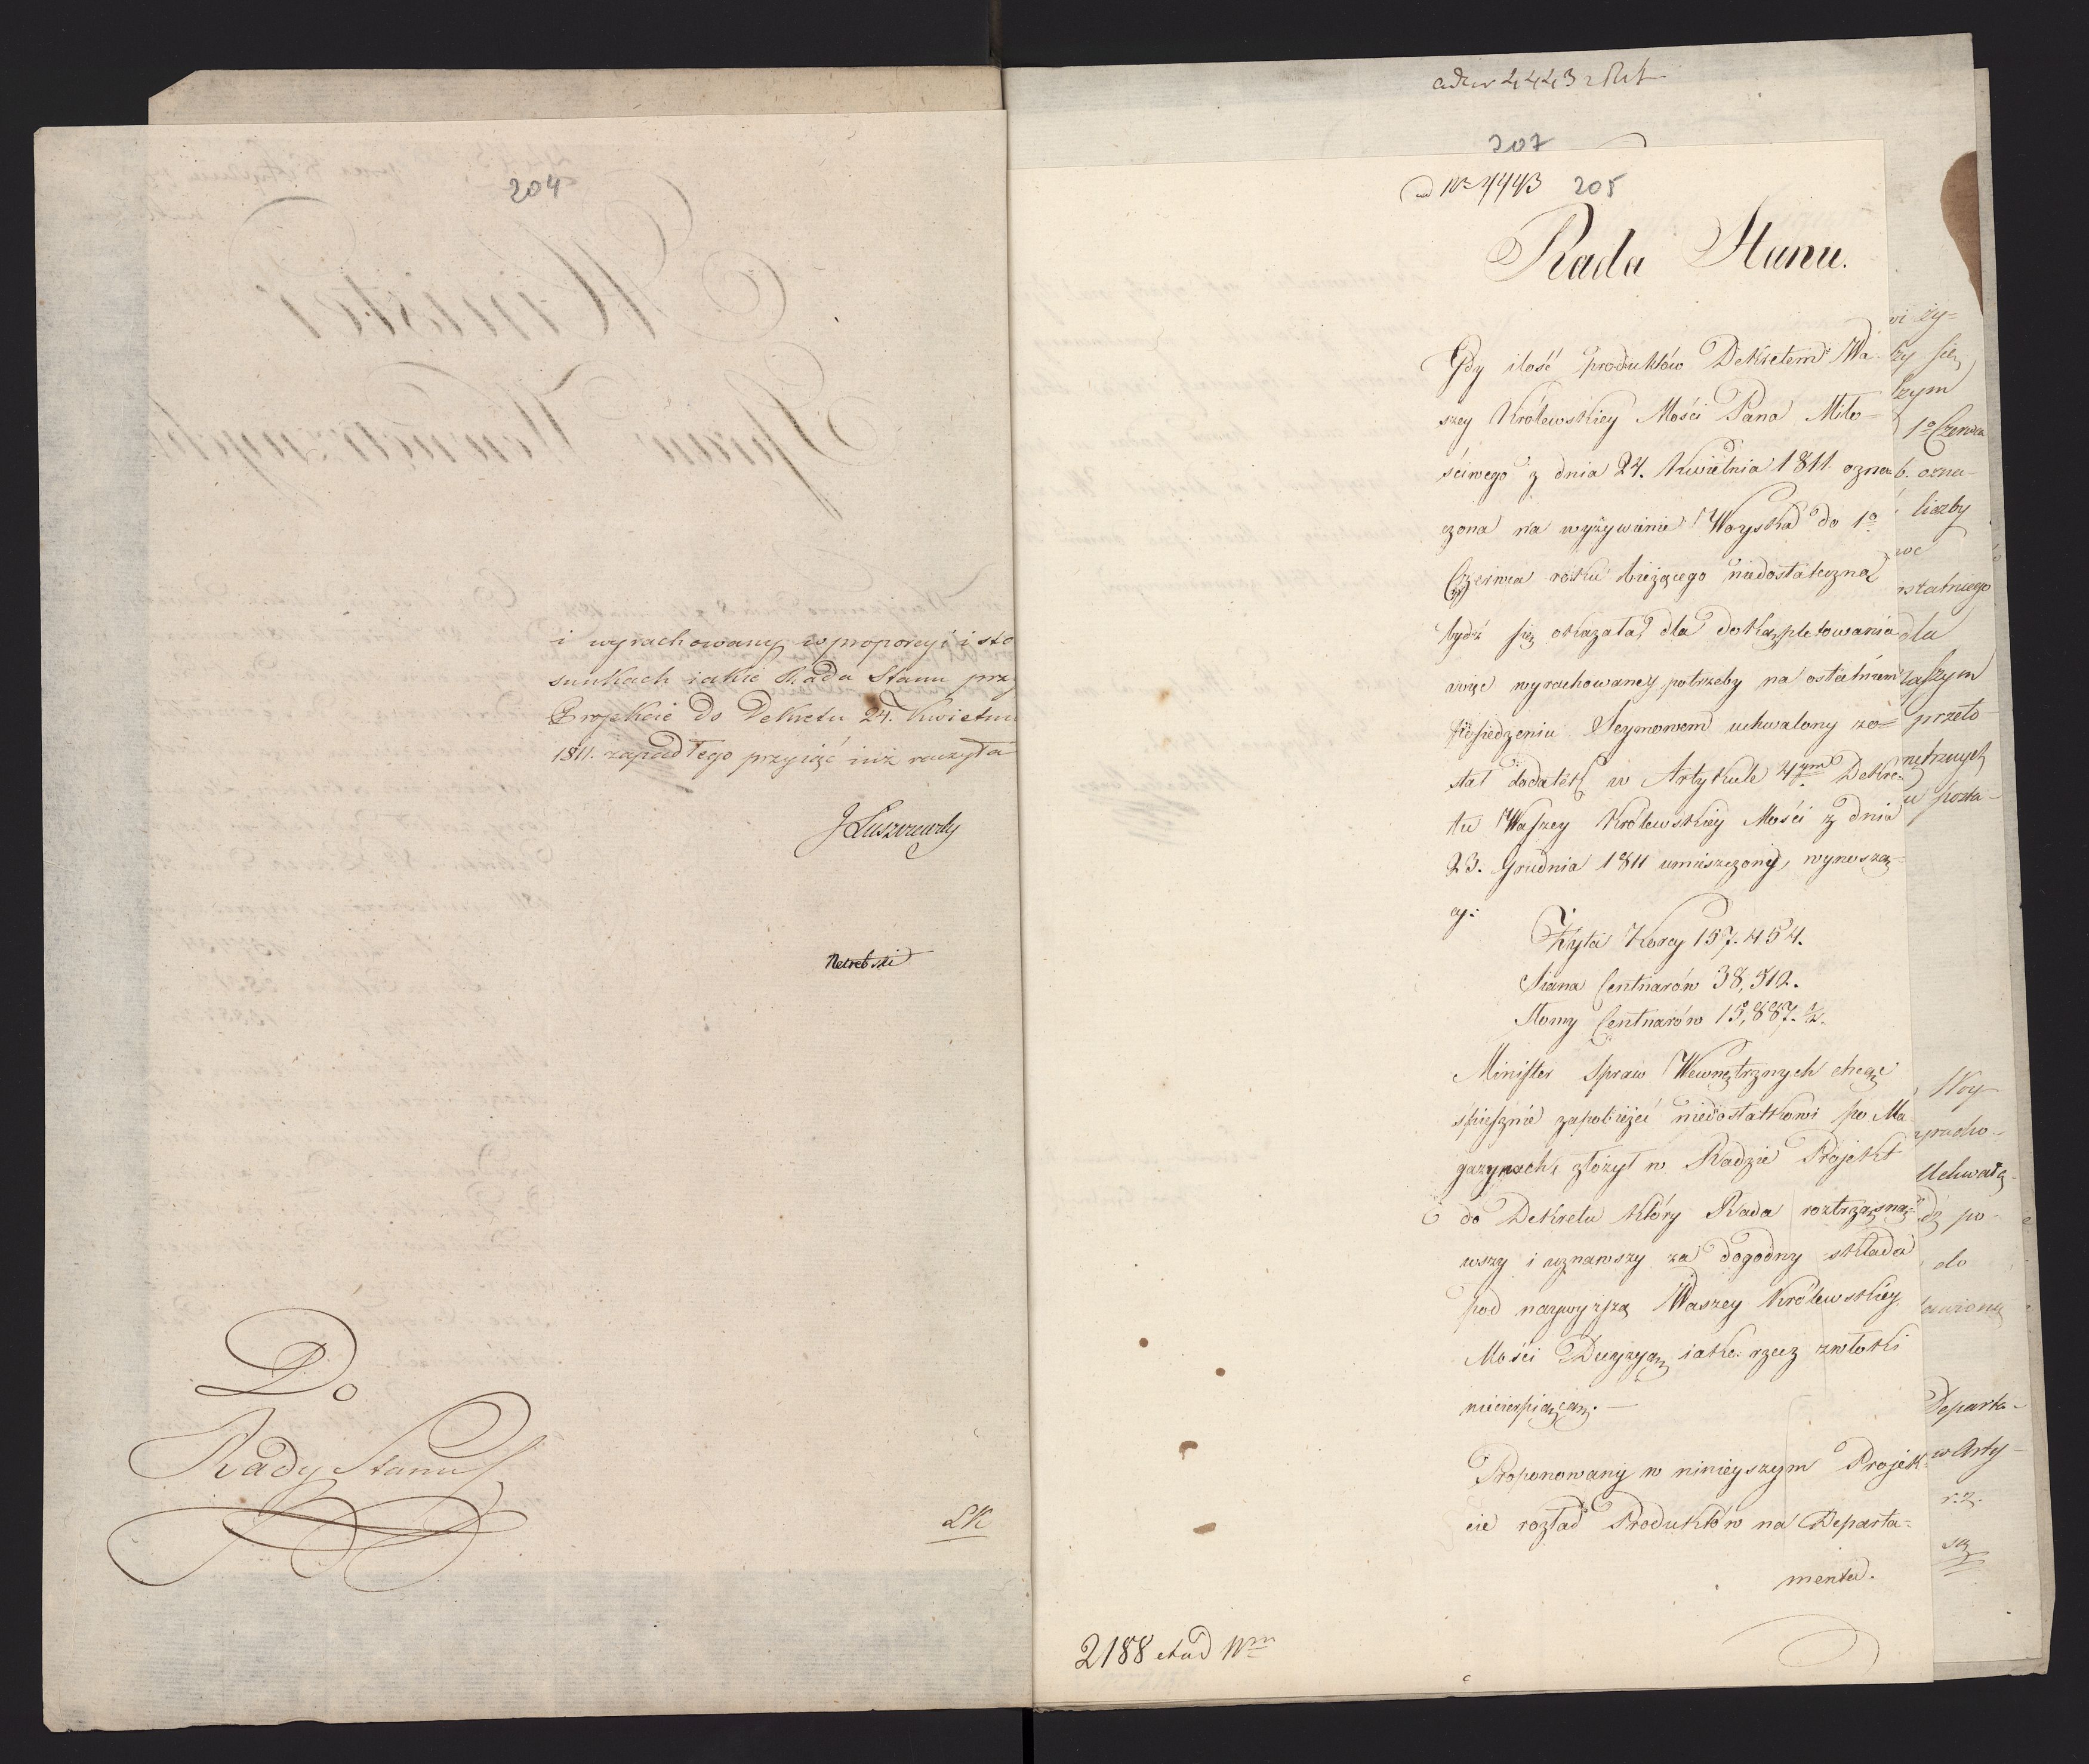 204
i wyrachowany w proporcyi i sto
sunkach iakie Rada Stanu przy
Projekcie do Dekretu 24. Kwietnia
1811. zapadłego przyiąć iuż raczyła
J Łuszczewsky
Do
Rady Stanu
LK
4443
207
ad Nr 4443 205
Rada Stanu.
Gdy ilość produktów Dekretem Wa-
szey Królewskiey Mości Pana Miło-
ściwego z dnia 24. Kwietnia 1811. ozna-
czona na wyżywienie Woyska do 1o
Czerwca roku bieżącego niedostateczną
bydź się okazała, dla dokompletowania
więc wyrachowaney potrzeby na ostatniem
Posiedzeniu Seymowem uchwalony zo-
stał dodatek w Artykule 4ym Dekre-
tu Waszey Królewskiey Mości z dnia
23. Grudnia 1811 umieszczony, wynoszą-
cy:
Żyta Korcy 157.454.
Siana Centnarów 38,512.
Słomy Centnarów 15,887.½.
Minister Spraw Wewnętrznych chcąc
śpiesznie zapobieżeć niedostatkowi po Ma-
gazynach, złożył w Radzie Projekt
do Dekretu który Rada roztrząsną-
wszy i uznawszy za dogodny składa
pod naywyższą Waszey Królewskiey
Mości Decyzyą, iako rzecz zwłoki
niecierpiącą. —
Proponowany w ninieyszym Projek-
cie rozkład Produktów na Departa-
menta.
2188 et ad Nm
1o Czerwca
ozna-
liczby
dla
przeto
Woy-
Uchwałą
po-
do
Departa-
w Arty-